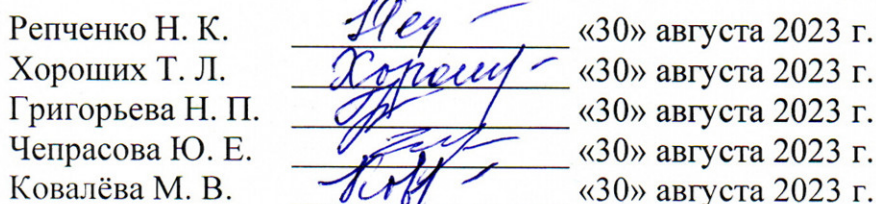 Репченко Н. К. «30» августа 2023 г.
Хороших Т. Л. «30» августа 2023 г.
Григорьева Н. П. «30» августа 2023 г.
Чепрасова Ю. Е. «30» августа 2023 г.
Ковалёва М. В. «30» августа 2023 г.